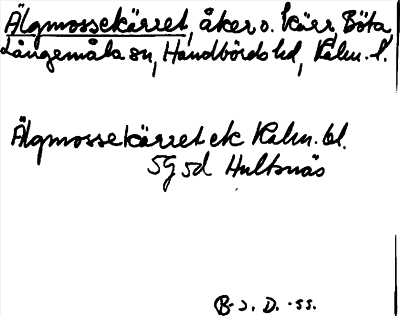 Älgmossekärret, åker o. kärr, Böta,
Långemåla sn, Handbörds hd, Kalm. l.
Älgmossekärret ek Kalm. bl.
5G 5d Hultsnäs
B-J. D. -55.